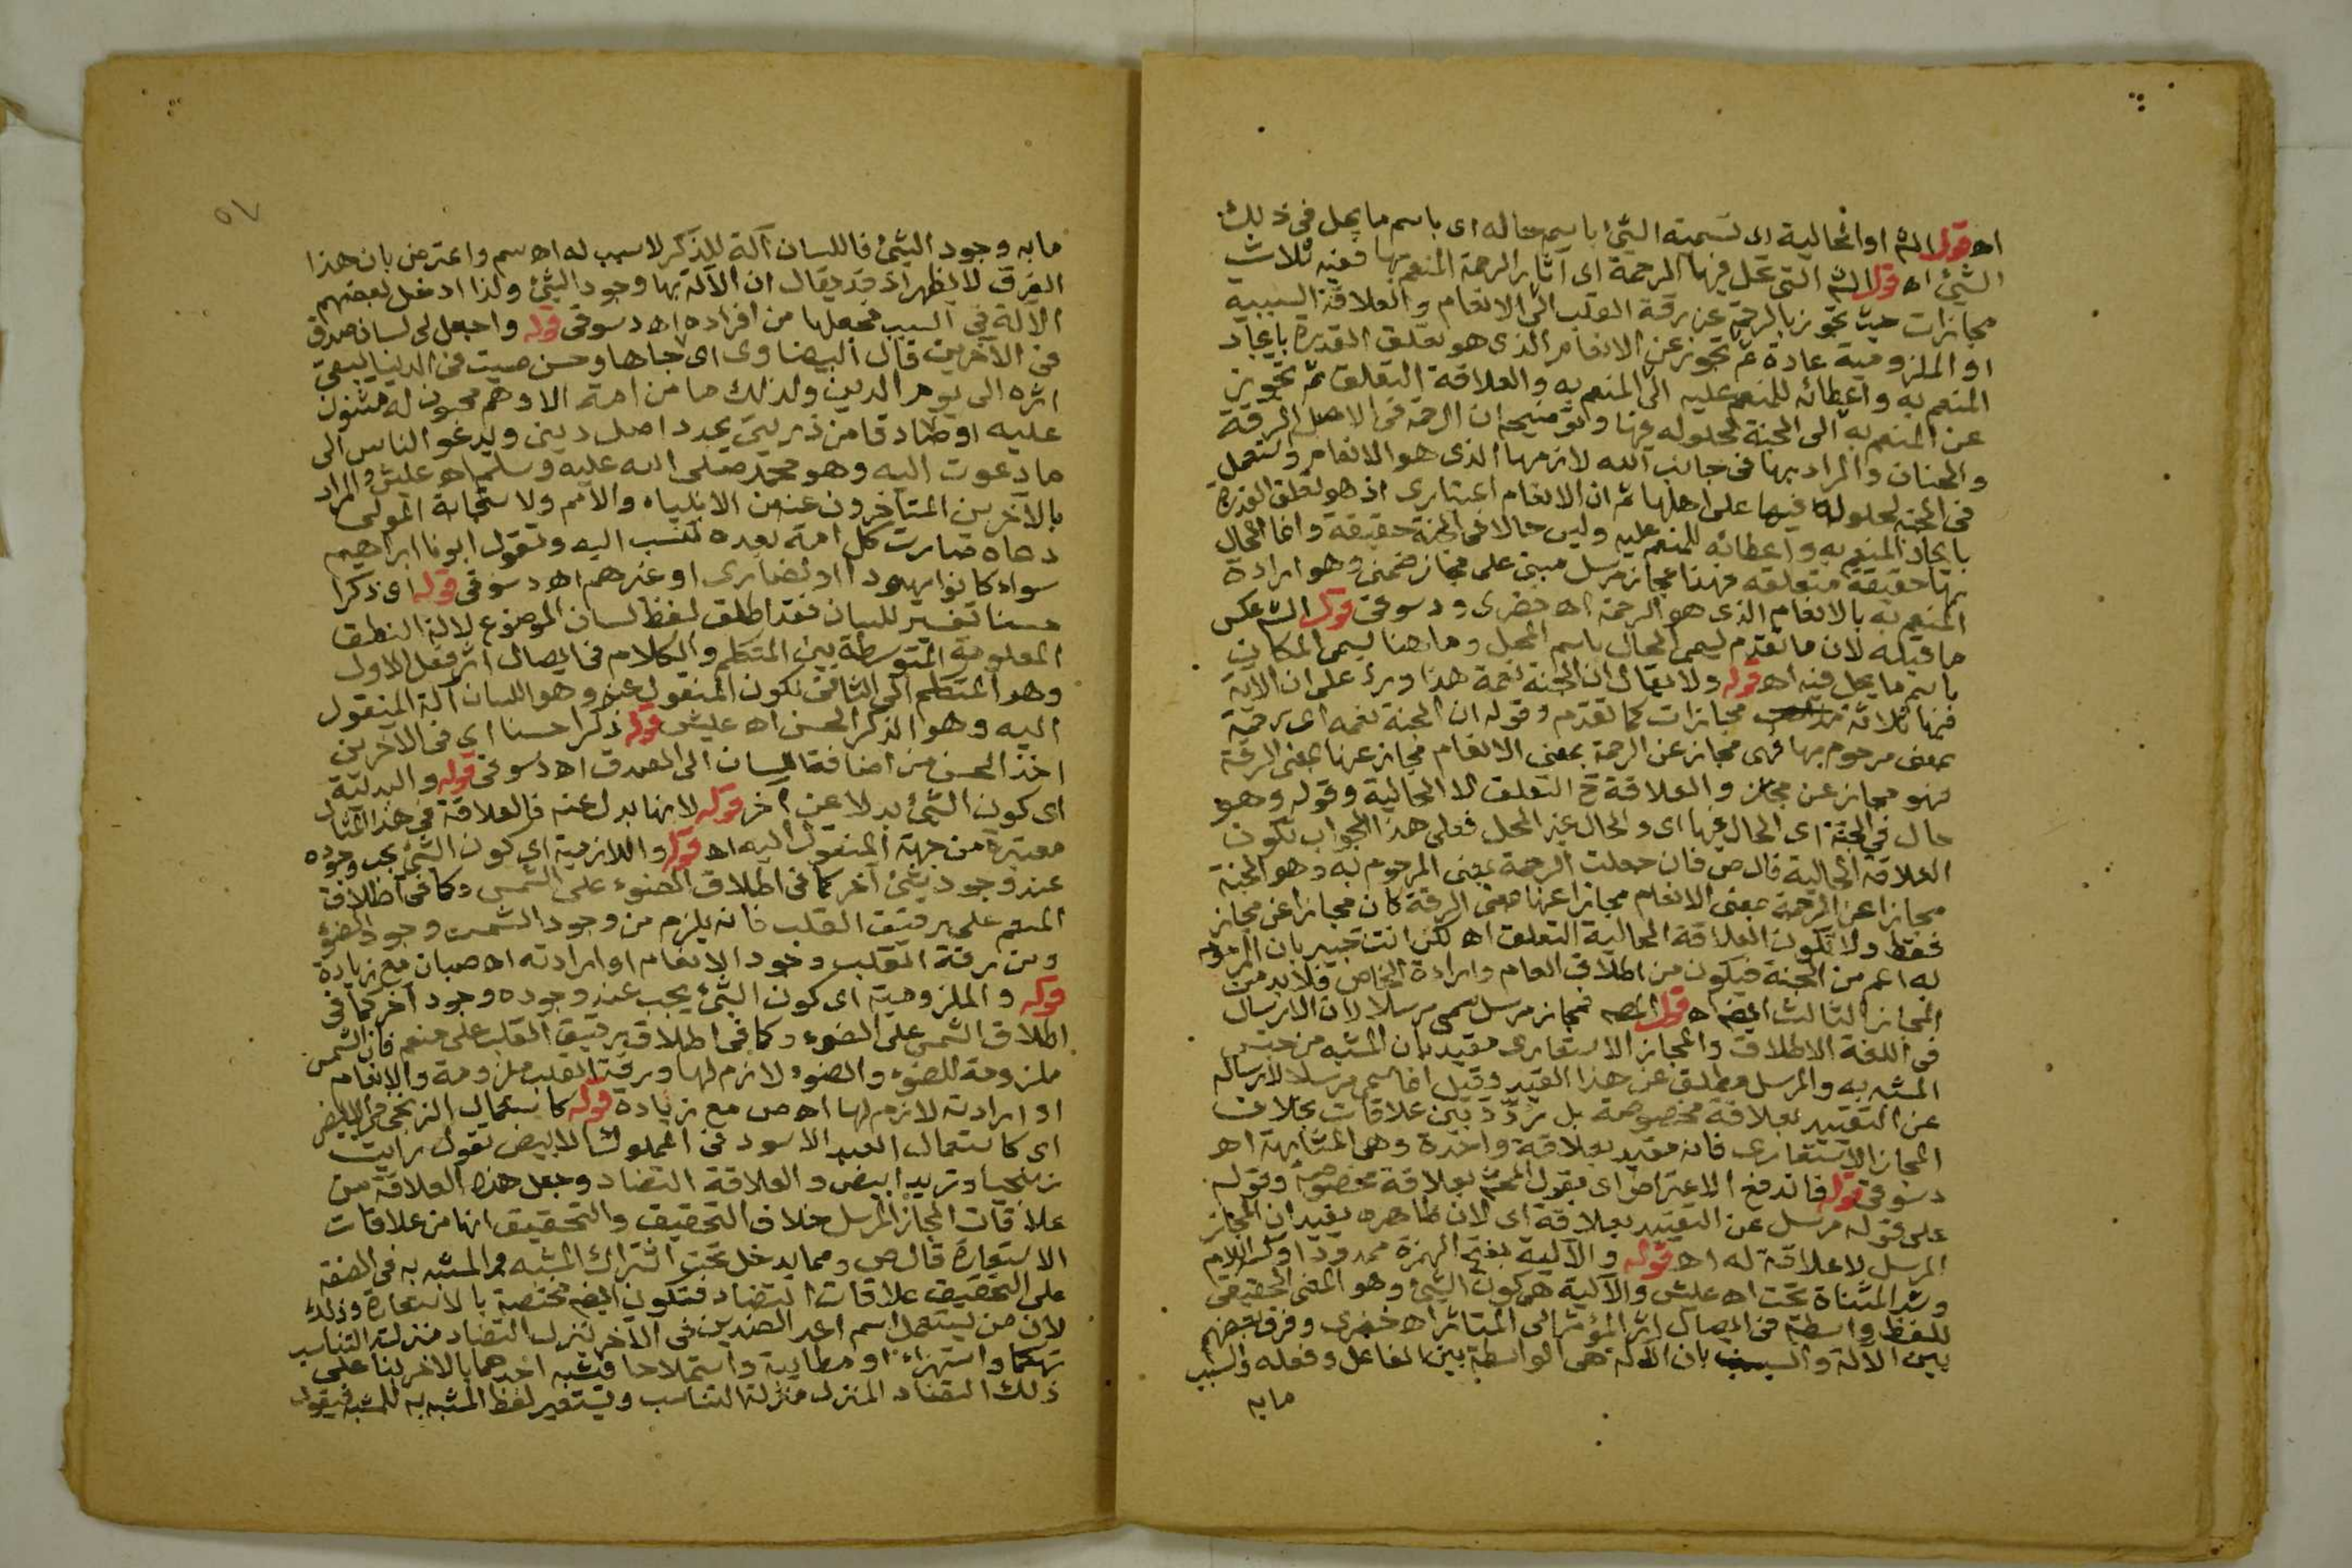 اه قوله الشم او الحالية اى تسمية الشئ باسم حاله اى باسم ما يحل فى ذلك
الشئ اه قوله الشم التى تحل فيها الرحمة اى آثار الرحمة المنعم بها ففيه ثلاث
مجازات حيث تجوز بالرحمة عن رقة القلب الى الانعام والعلاقة السببية
او الملزومية عادة ثم تجوز عن الانعام الذى هو تعلق القدرة بايجاد
المنعم به واعطائه للمنعم عليه الى المنعم به والعلاقة التعلق ثم تجوز
عن المنعم به الى الجنة لحلوله فيها وتوضيحه ان الرحمة فى الاصل الرقة
والحنان والمراد بها فى جانب الله لازمها الذى هو الانعام وتستعمل
فى الجنة لحلوله فيها على اهلها ثم ان الانعام اعتبارى اذ هو تعلق القدرة
بايجاد المنعم به واعطائه للمنعم عليه وليس حالا فى الجنة حقيقة وانما الحال
بها حقيقة متعلقه فهذا مجاز مرسل مبنى على مجاز ضمنى وهو ارادة
المنعم به بالانعام الذى هو الرحمة اه خضرى ودسوقى قوله الشم عكس
ما قبله لان ما تقدم يسمى الحال باسم المحل وما هنا يسمى المكان
باسم ما يحل فيه اه قوله ولا يقال ان الجنة نعمة هذا ورد على ان الآية
فيها ثلاثة مجازات كما تقدم وقوله ان الجنة نعمه اى رحمة
بمعنى مرحوم بها فهى مجاز عن الرحمة بمعنى الانعام مجاز عنها بمعنى الرقة
فهو مجاز عن مجاز والعلاقة ح التعلق لا الحالية وقوله وهو
حال فى الجنة اى الحال فيها اى والحال غير المحل فعلى هذا الجواب تكون
العلاقة الحالية قال ص فان جعلت الرحمة بمعنى المرحوم به وهو الجنة
مجازا عن الرحمة بمعنى الانعام مجازا عنها بمعنى الرقة كان مجازا عن مجاز
فقط ولا تكون العلاقة الحالية التعلق اه لكن انت خبير بان المرحوم
به اعم من الجنة فيكون من اطلاق العام وارادة الخاص فلا بد من
المجاز الثالث ايضا اه قوله المصـ مجاز مرسل سمى مرسلا لان الارسال
فى اللغة الاطلاق والمجاز الاستعارى مقيد بان المشبه من جنس
المشبه به والمرسل مطلق عن هذا القيد وقيل انما سمى مرسلا لارساله
عن التقييد بعلاقة مخصوصة بل ردد بين علاقات بخلاف
المجاز الاستعارى فانه مقيد بعلاقة واحدة وهى المشابهة اه
دسوقى قوله فاندفع الاعتراض اى بقول المحشى بعلاقة مخصوصة وقوله
على قوله مرسل عن التقييد بعلاقة اى لان ظاهره يفيد ان المجاز
المرسل لا علاقة له اه قوله والآلية بفتح الهمزة ممدودا وكسر اللام
وشد المثناة تحت اه عليش والآلية هى كون الشئ وهو المعنى الحقيقى
للفظ واسطة فى ايصال اثر المؤثر الى المتاثر اه خضرى وفرق بعضهم
بين الآلة والسبب بان الآلة هى الواسطة بين الفاعل وفعله والسبب
مابه
٥٧
مابه وجود الشئ فاللسان آلة للذكر لا سبب له اه سم واعترض بان هذا
الفرق لا يظهر اذ قد يقال ان الآلة بها وجود الشئ ولذا ادخل بعضهم
الآلة فى السبب فجعلها من افراده اه دسوقى قوله واجعل لى لسان صدق
فى الآخرين قال البيضاوى اى جاها وحسن صيت فى الدنيا يبقى
اثره الى يوم الدين ولذلك ما من امة الا وهم محبون له مثنون
عليه او صادقا من ذريتى يجدد اصل دينى ويدعو الناس الى
ما دعوت اليه وهو محمد صلى الله عليه وسلم اه عليش والمراد
بالآخرين المتأخرون عنه من الانبياء والأمم ولاستجابة المولى
دعاه صارت كل امة بعده تنسب اليه وتقول ابونا ابراهيم
سواء كانوا يهودا او نصارى او غيرهم اه دسوقى قوله اى ذكرا
حسنا تفسير للسان فقد اطلق لفظ لسان الموضوع لآلة النطق
المعلومة المتوسطة بين المتكلم والكلام فى ايصال اثر فعل الاول
وهو المتكلم الى الثانى لكون المنقول عنه وهو اللسان آلة المنقول
اليه وهو الذكر الحسن اه عليش قوله ذكرا حسنا اى فى الآخرين
اخذ الحسن من اضافة اللسان الى الصدق اه دسوقى قوله والبدلية
اى كون الشئ بدلا عن آخر قوله لانها بدل عنه فالعلاقة فى هذا المثال
معتبرة من جهة المنقول اليه اه قوله واللازمية اى كون الشئ يجب وجوده
عند وجود شئ آخر كما فى اطلاق الضوء على الشمس وكما فى اطلاق
المنعم على رقيق القلب فانه يلزم من وجود الشمس وجود الضوء
ومن رقة القلب وجود الانعام او ارادته اه صبان مع زيادة
قوله والملزومية اى كون الشئ يجب عند وجوده وجود آخر كما فى
اطلاق الشمس على الضوء وكما فى اطلاق رقيق القلب على منعم فان الشمس
ملزومة للضوء والضوء لازم لها ورقة القلب ملزومة والانعام
او ارادته لازم لها اه ص مع زيادة قوله كاستعمال الزنجى فى الابيض
اى كاستعمال العبد الاسود فى المملوك الابيض تقول رايت
زنجيا وتريد ابيض والعلاقة التضاد وجعل هذه العلاقة من
علاقات المجاز المرسل خلاف التحقيق والتحقيق انها من علاقات
الاستعارة قال ص ومما يدخل تحت اشتراك المشبه والمشبه به فى الصفة
على التحقيق علاقات التضاد فتكون ايضا مختصة بالاستعارة وذلك
لان من يستعمل اسم احد الضدين فى الآخر ينزل التضاد منزلة التناسب
تهكما واستهزاء او مطايبة واستملاحا فشبه احدهما بالآخر بناء على
ذلك التضاد المنزل منزلة التناسب ويستعير لفظ المشبه به للمشبه فيقول